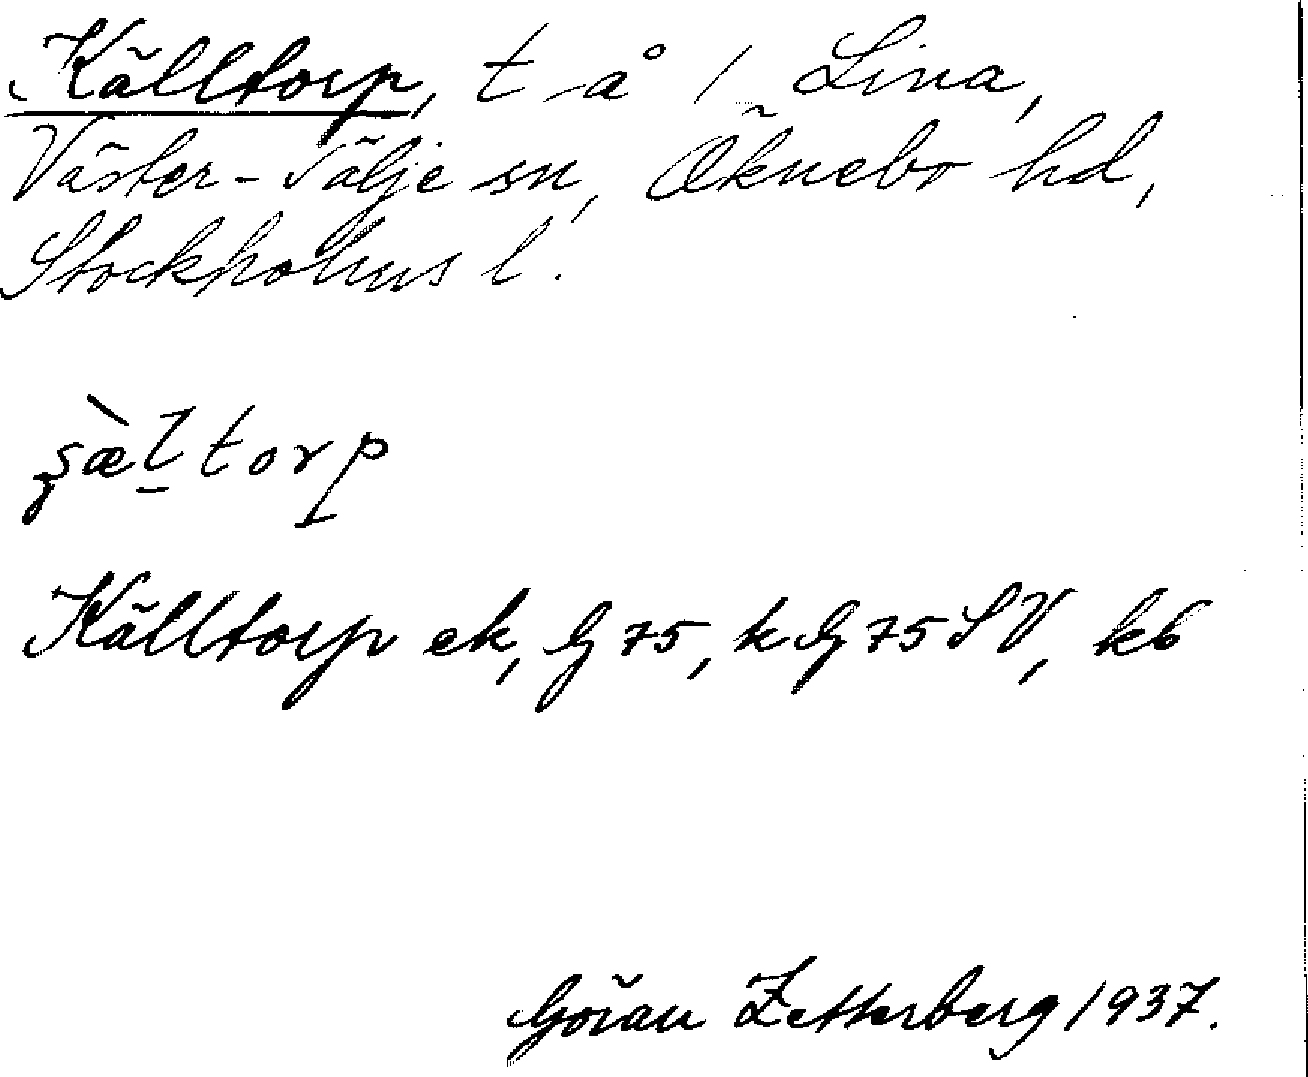 Källtorp, t å / Lina,
Väster-Tälje sn, Öknebo hd,
Stockholms l.
Källtorp ek, G 75, k G 75 SV, k6
Göran Zetterberg 1937.